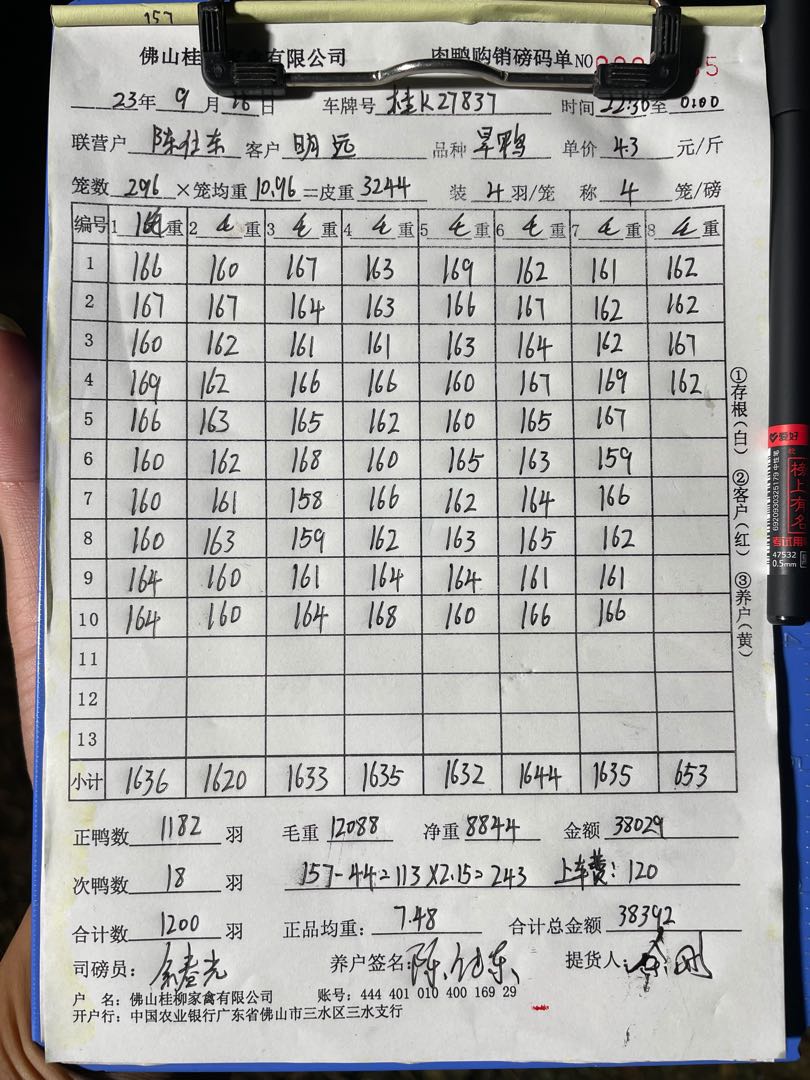 157
佛山桂柳家禽有限公司 肉鸭购销磅码单 NO 5
23年 9月 16日 车牌号 桂K27837 时间 22:30至 0:00
联营户 陈仕东 客户 明远 品种 旱鸭 单价 4.3 元/斤
笼数 296 ×笼均重 10.96 =皮重 3244 装 4 羽/笼 称 4 笼/磅
编号 1 毛重 2 毛重 3 毛重 4 毛重 5 毛重 6 毛重 7 毛重 8 毛重
1 166 160 167 163 169 162 161 162
2 167 167 164 163 166 167 162 162
3 160 162 161 161 163 164 162 167
4 169 162 166 166 160 167 169 162
5 166 163 165 162 160 165 167
6 160 162 168 160 165 163 159
7 160 161 158 166 162 164 166
8 160 163 159 162 163 165 162
9 164 160 161 164 164 161 161
10 164 160 164 168 160 166 166
11
12
13
小计 1636 1620 1633 1635 1632 1644 1635 653
正鸭数 1182 羽 毛重 12088 净重 8844 金额 38029
次鸭数 18 羽 157-44=113×2.15=243 上车费:120
合计数 1200 羽 正品均重: 7.48 合计总金额 38392
司磅员: 余春光 养户签名: 陈仕东 提货人:
户 名: 佛山桂柳家禽有限公司 账号: 444 401 010 400 169 29
开户行: 中国农业银行广东省佛山市三水区三水支行
①存根(白) ②客户(红) ③养户(黄)
爱好
榜上有名
考试用
6920903521579
47532
0.5mm